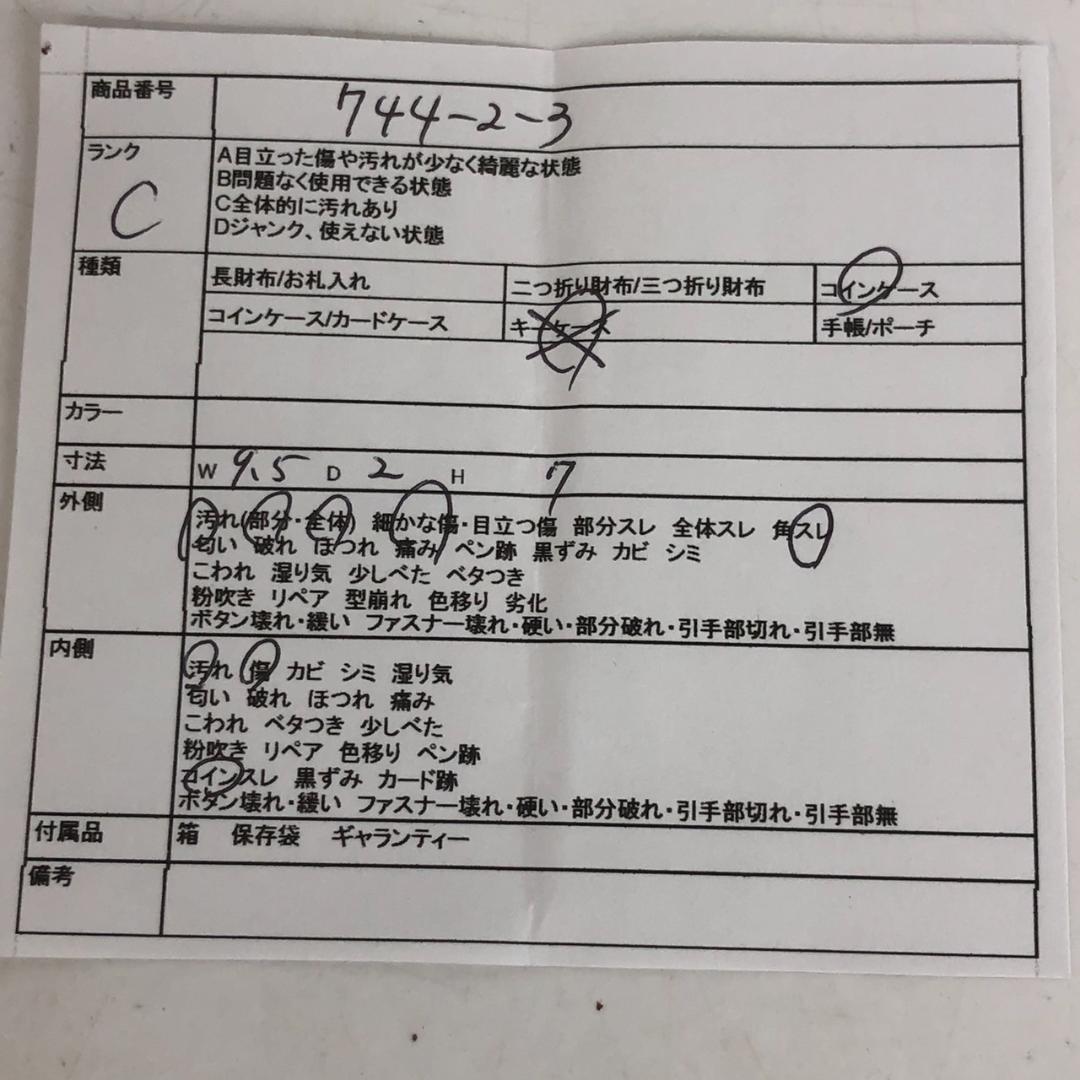 商品番号 744-2-3
ランク C
A目立った傷や汚れが少なく綺麗な状態
B問題なく使用できる状態
C全体的に汚れあり
Dジャンク、使えない状態
種類
長財布/お札入れ 二つ折り財布/三つ折り財布 コインケース
コインケース/カードケース キーケース 手帳/ポーチ
カラー
寸法 W 9.5 D 2 H 7
外側
汚れ(部分・全体) 細かな傷・目立つ傷 部分スレ 全体スレ 角スレ
匂い 破れ ほつれ 痛み ペン跡 黒ずみ カビ シミ
こわれ 湿り気 少しべた ベタつき
粉吹き リペア 型崩れ 色移り 劣化
ボタン壊れ・緩い ファスナー壊れ・硬い・部分破れ・引手部切れ・引手部無
内側
汚れ 傷 カビ シミ 湿り気
匂い 破れ ほつれ 痛み
こわれ ベタつき 少しべた
粉吹き リペア 色移り ペン跡
コインスレ 黒ずみ カード跡
ボタン壊れ・緩い ファスナー壊れ・硬い・部分破れ・引手部切れ・引手部無
付属品 箱 保存袋 ギャランティー
備考